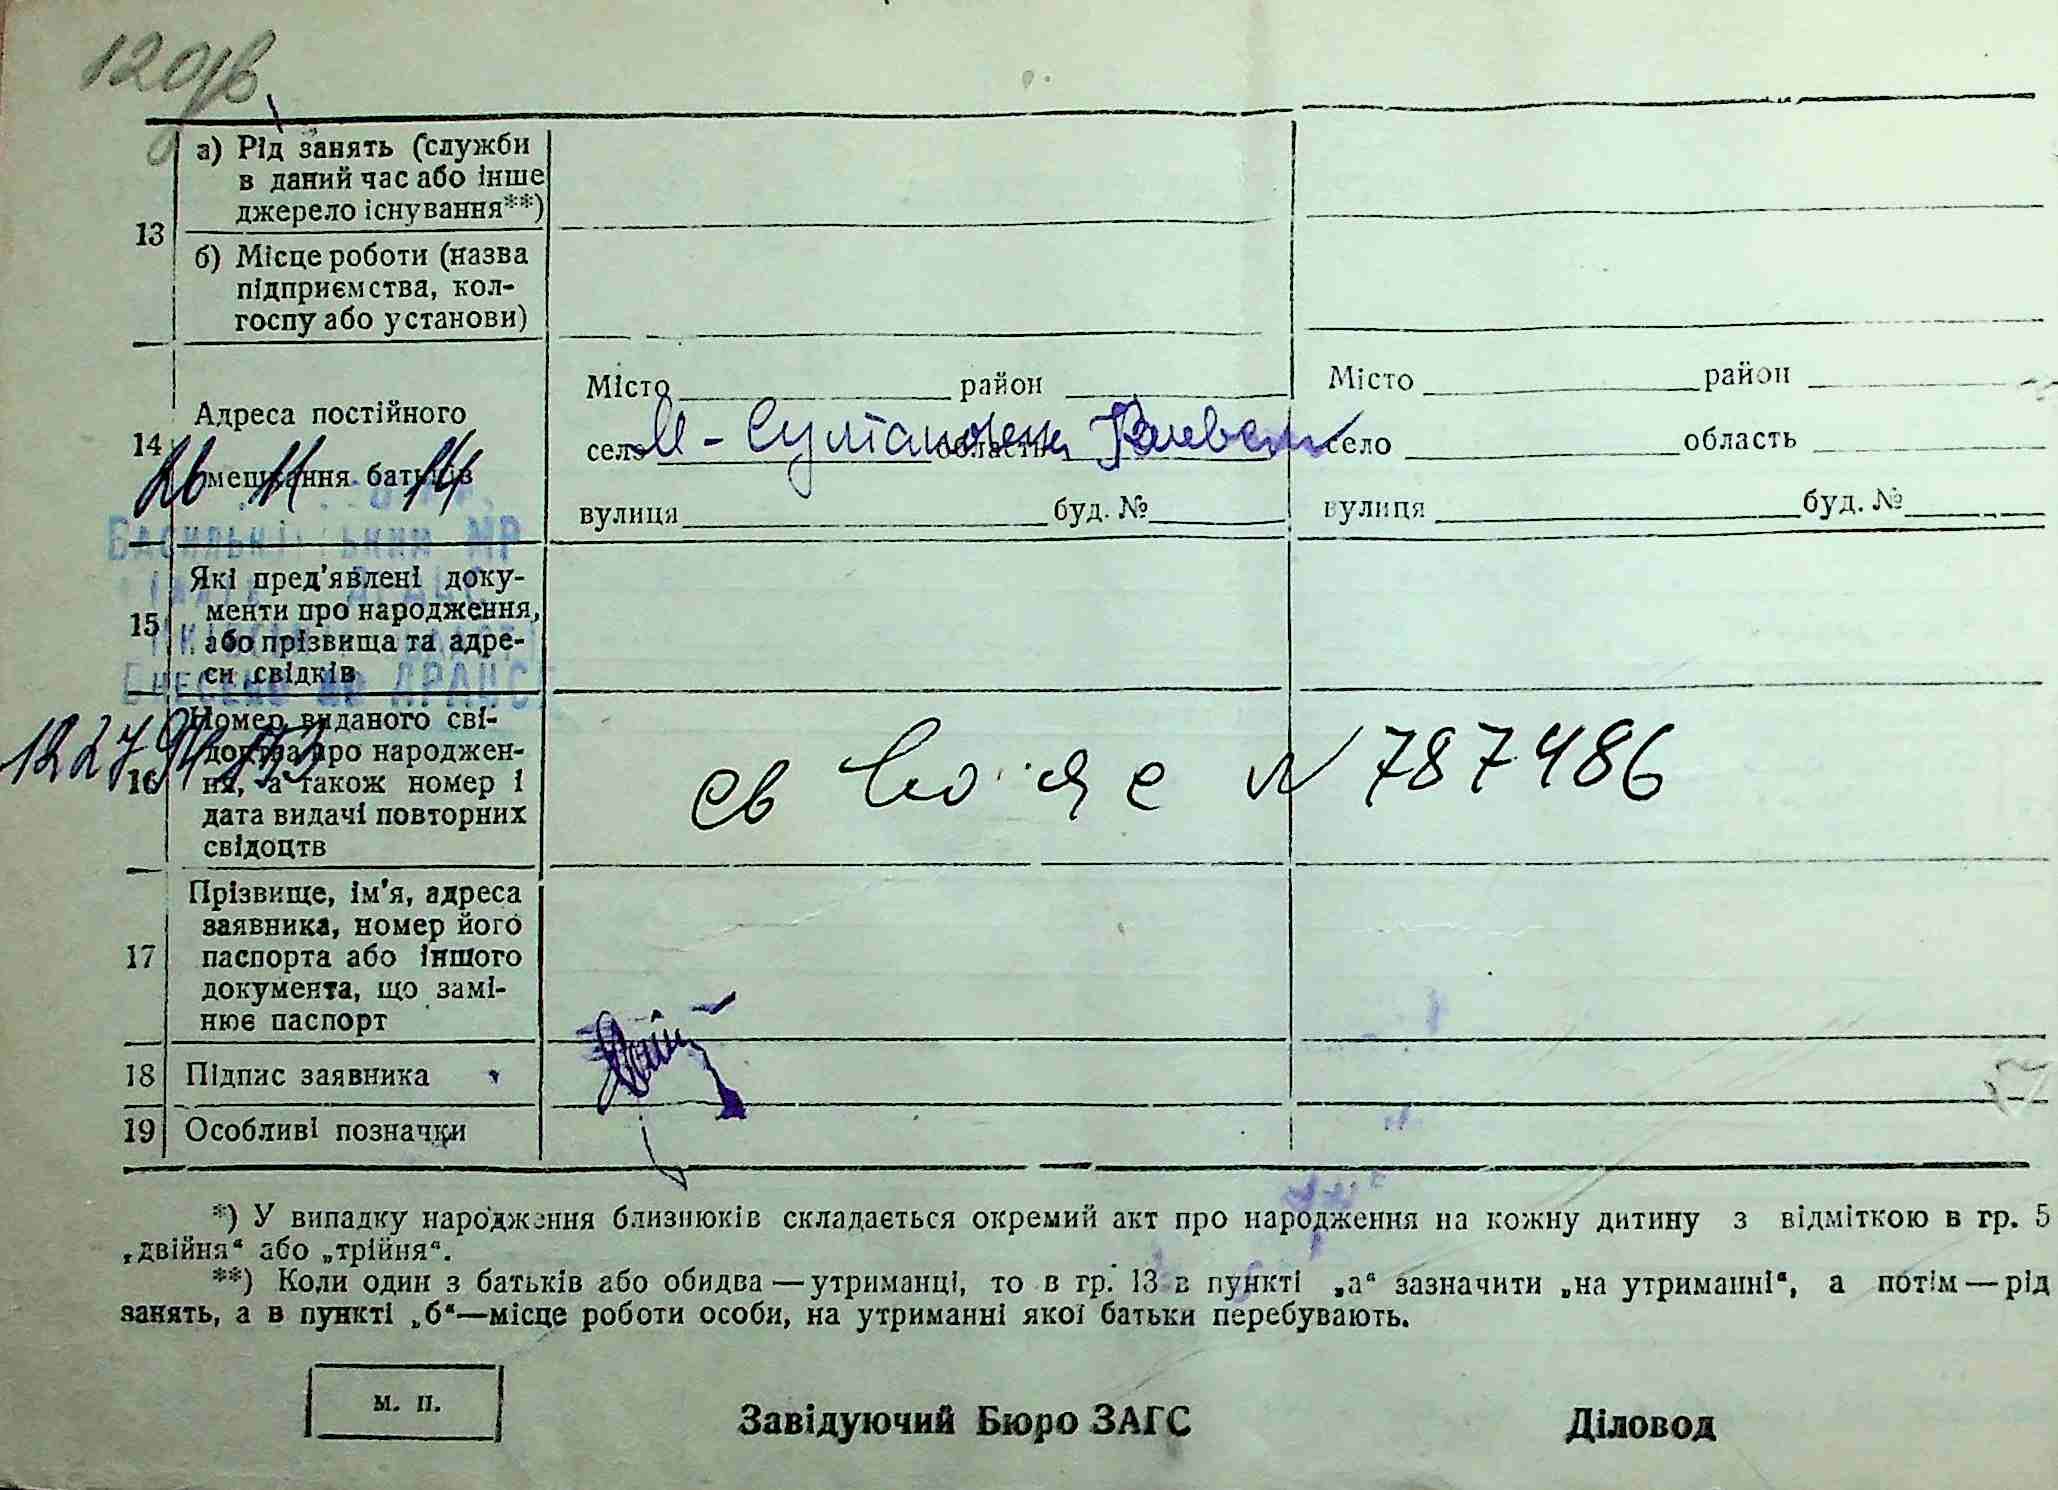 а) Рід занять (служби
в даний час або інше
джерело існування**)
13
б) Місце роботи (назва
підприємства, кол-
госпу або установи)
Місто район Місто район
Адреса постійного
14
село М - Султановка область село область
мешкання батьків
26 11 14
вулиця буд. № вулиця буд. №
Васильківський МР
Які пред'явлені доку-
менти про народження,
15
або прізвища та адре-
си свідків
Внесено до ДРАЦС
Номер виданого сві-
доцтва про народжен-
16
ня, а також номер і
дата видачі повторних
свідоцтв
св № 787486
Прізвище, ім'я, адреса
заявника, номер його
17
паспорта або іншого
документа, що замі-
нює паспорт
18 Підпис заявника
19 Особливі позначки
*) У випадку народження близнюків складається окремий акт про народження на кожну дитину з відміткою в гр. 5
„двійня“ або „трійня“.
**) Коли один з батьків або обидва — утриманці, то в гр. 13 в пункті „а“ зазначити „на утриманні“, а потім — рід
занять, а в пункті „б“—місце роботи особи, на утриманні якої батьки перебувають.
м. п.
Завідуючий Бюро ЗАГС Діловод